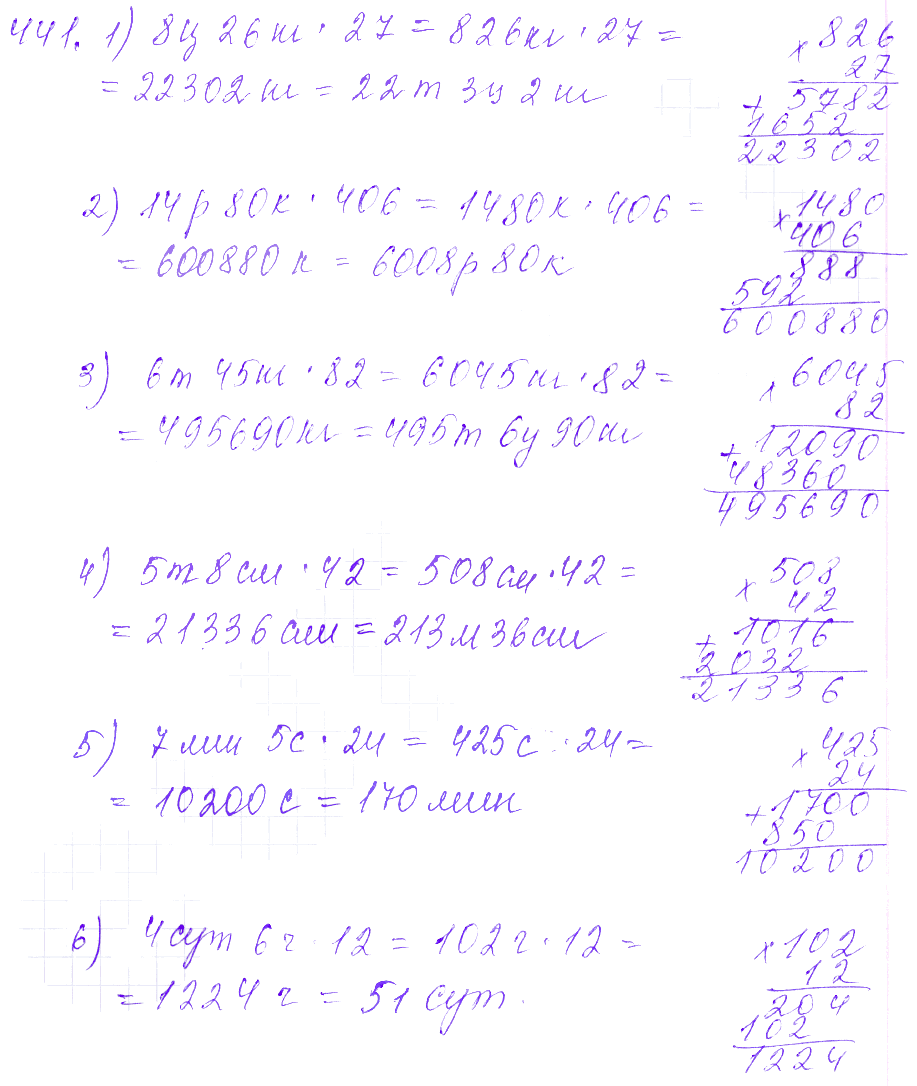 441. 1) 8ц 26кг · 27 = 826кг · 27 =
= 22302 кг = 22т 3ц 2 кг
× 826
27
+ 5782
1652
22302
2) 14р 80к · 406 = 1480к · 406 =
= 600880 к = 6008р 80к
× 1480
406
888
592
600880
3) 6т 45кг · 82 = 6045кг · 82 =
= 495690кг = 495т 6ц 90кг
× 6045
82
+ 12090
48360
495690
4) 5м 8см · 42 = 508см · 42 =
= 21336см = 213м 36см
× 508
42
+ 1016
2032
21336
5) 7мин 5с · 24 = 425с · 24 =
= 10200с = 170мин
× 425
24
+ 1700
850
10200
6) 4сут 6ч · 12 = 102ч · 12 =
= 1224 ч = 51 сут.
× 102
12
204
102
1224